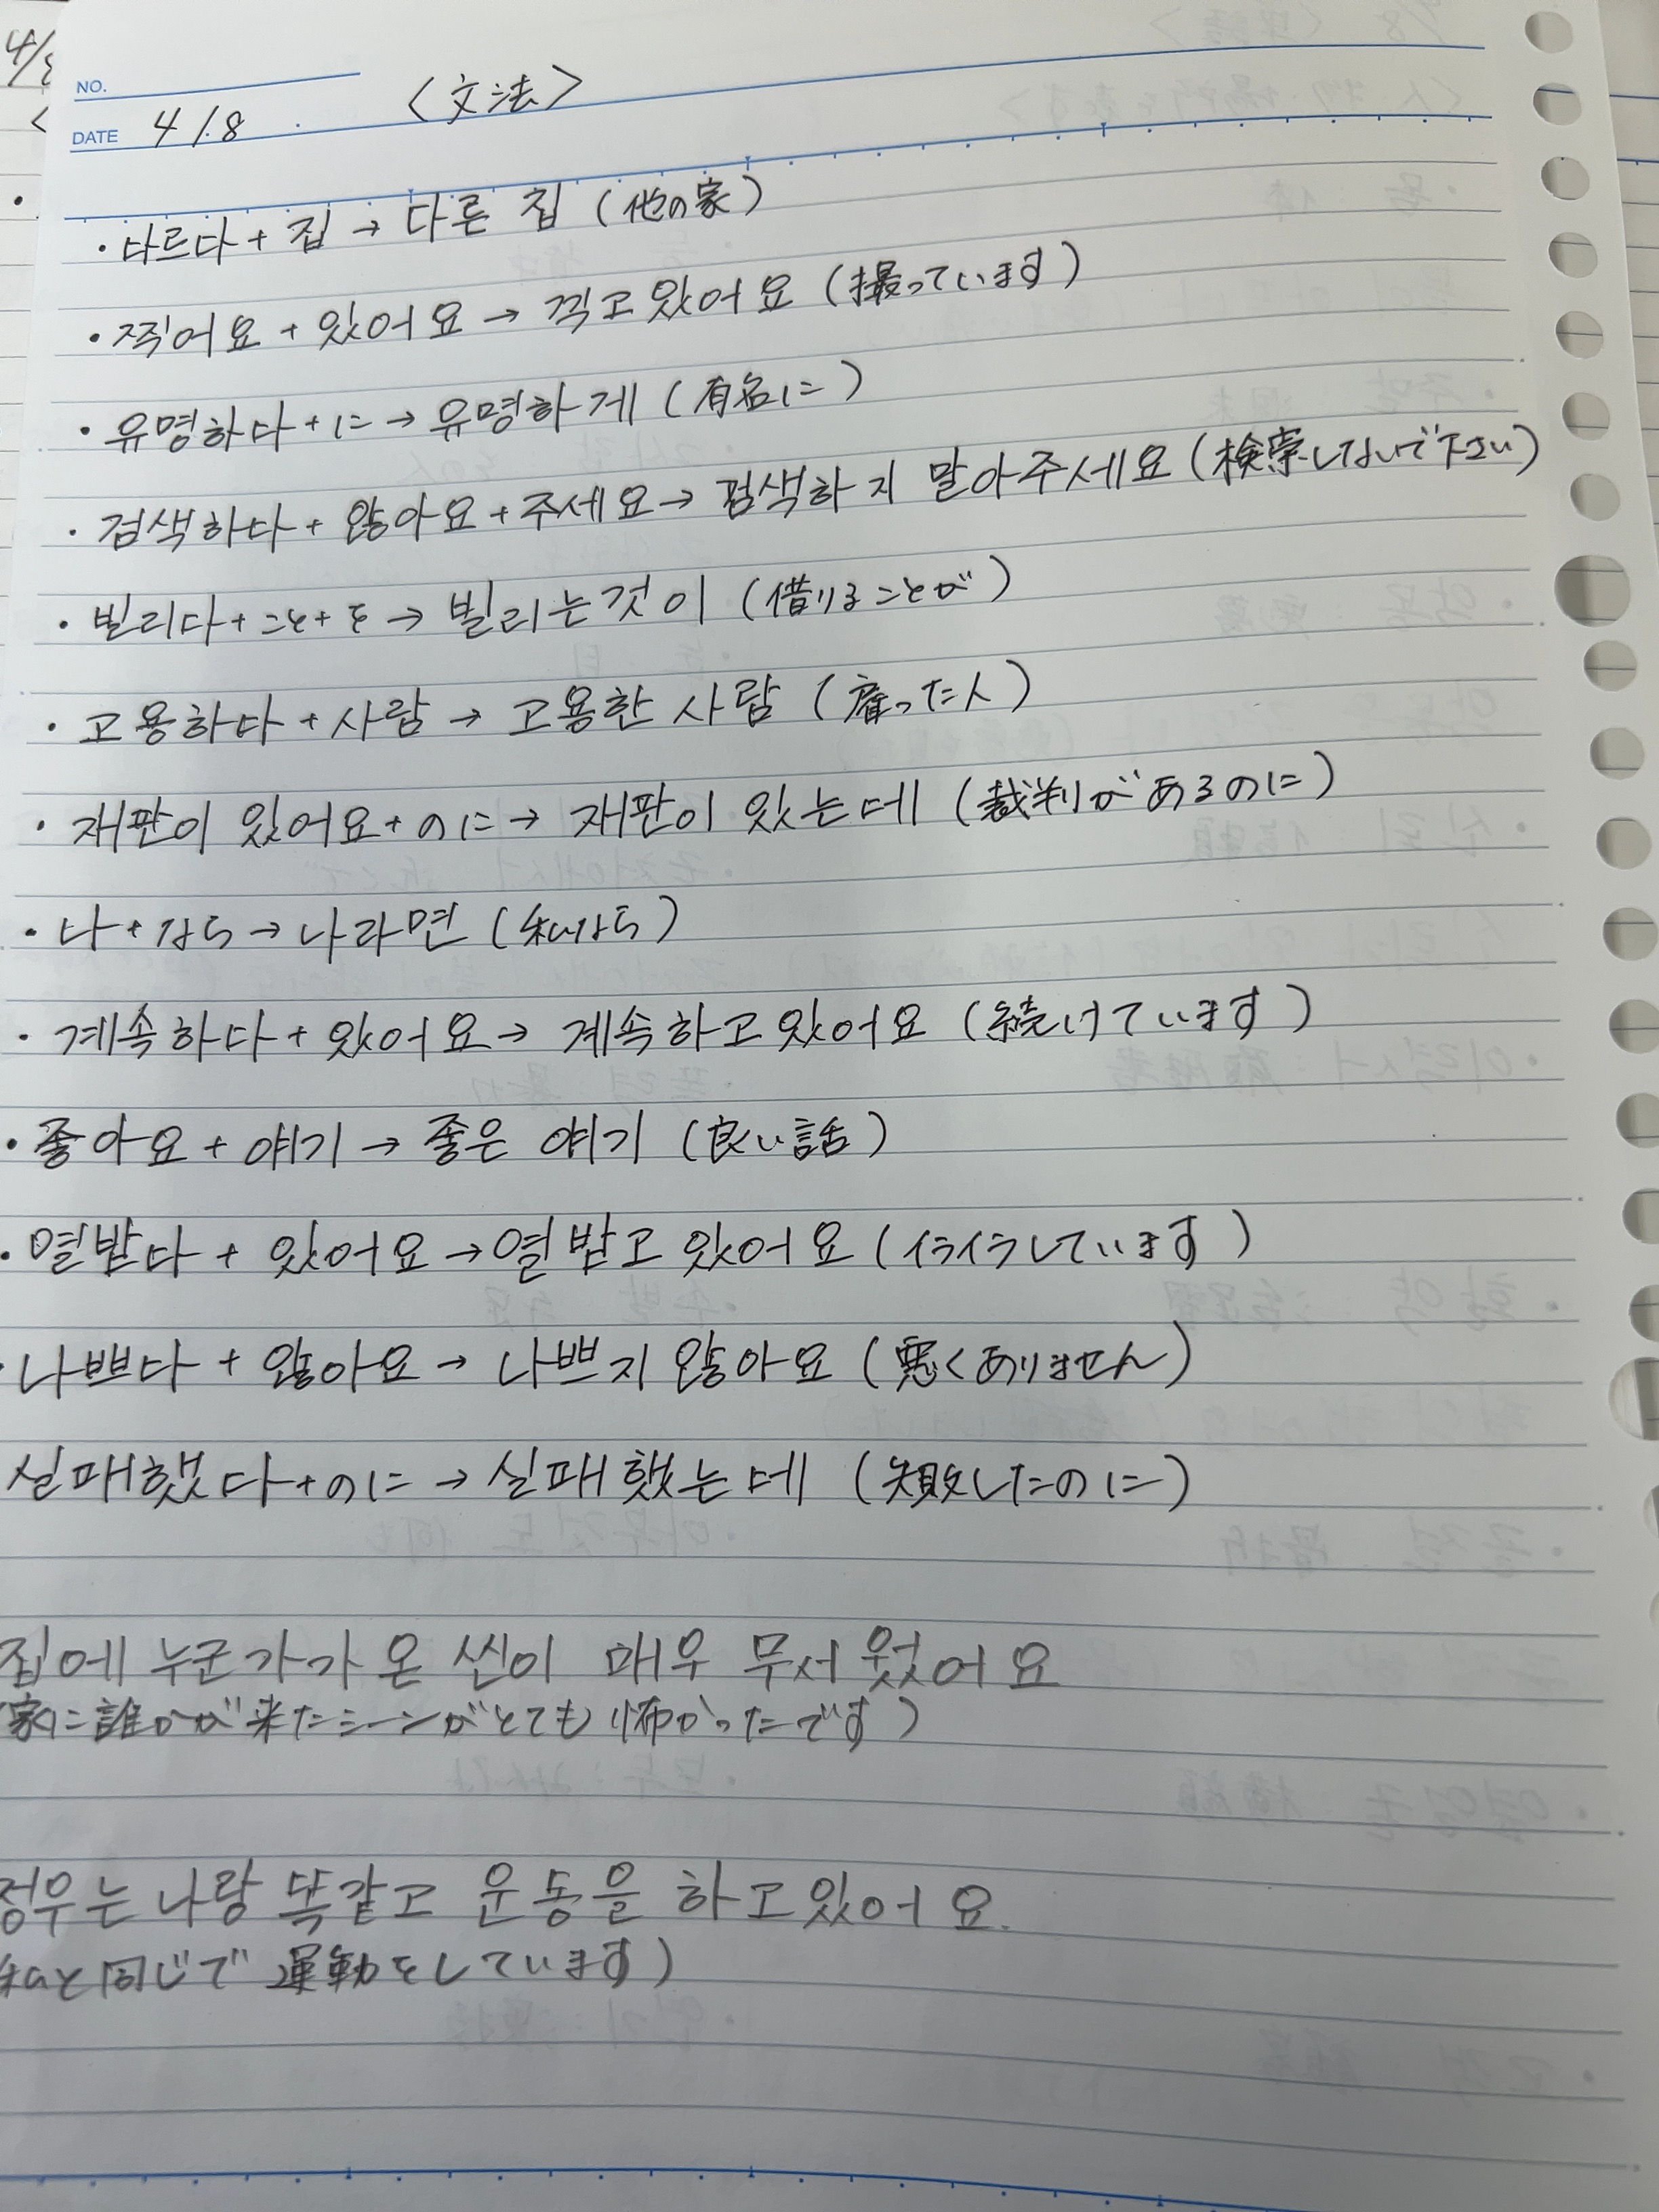 NO.
DATE 4/8 〈文法〉
・다르다+집→다른 집(他の家)
・찍어요+있어요→찍고있어요(撮っています)
・유명하다+に→유명하게(有名に)
・검색하다+않아요+주세요→검색하지 말아주세요(検索しないで下さい)
・빌리다+こと+を→빌리는것이(借りることが)
・고용하다+사람→고용한 사람(雇った人)
・재판이 있어요+のに→재판이 있는데(裁判があるのに)
・나+なら→나라면(私なら)
・계속하다+있어요→계속하고있어요(続けています)
・좋아요+얘기→좋은 얘기(良い話)
・열받다+있어요→열받고있어요(イライラしています)
・나쁘다+않아요→나쁘지 않아요(悪くありません)
실패했다+のに→실패했는데(失敗したのに)
집에 누군가가 온 씬이 매우 무서웠어요
(家に誰かが来たシーンがとても怖かったです)
정우는 나랑 똑같고 운동을 하고있어요.
私と同じで運動をしています)